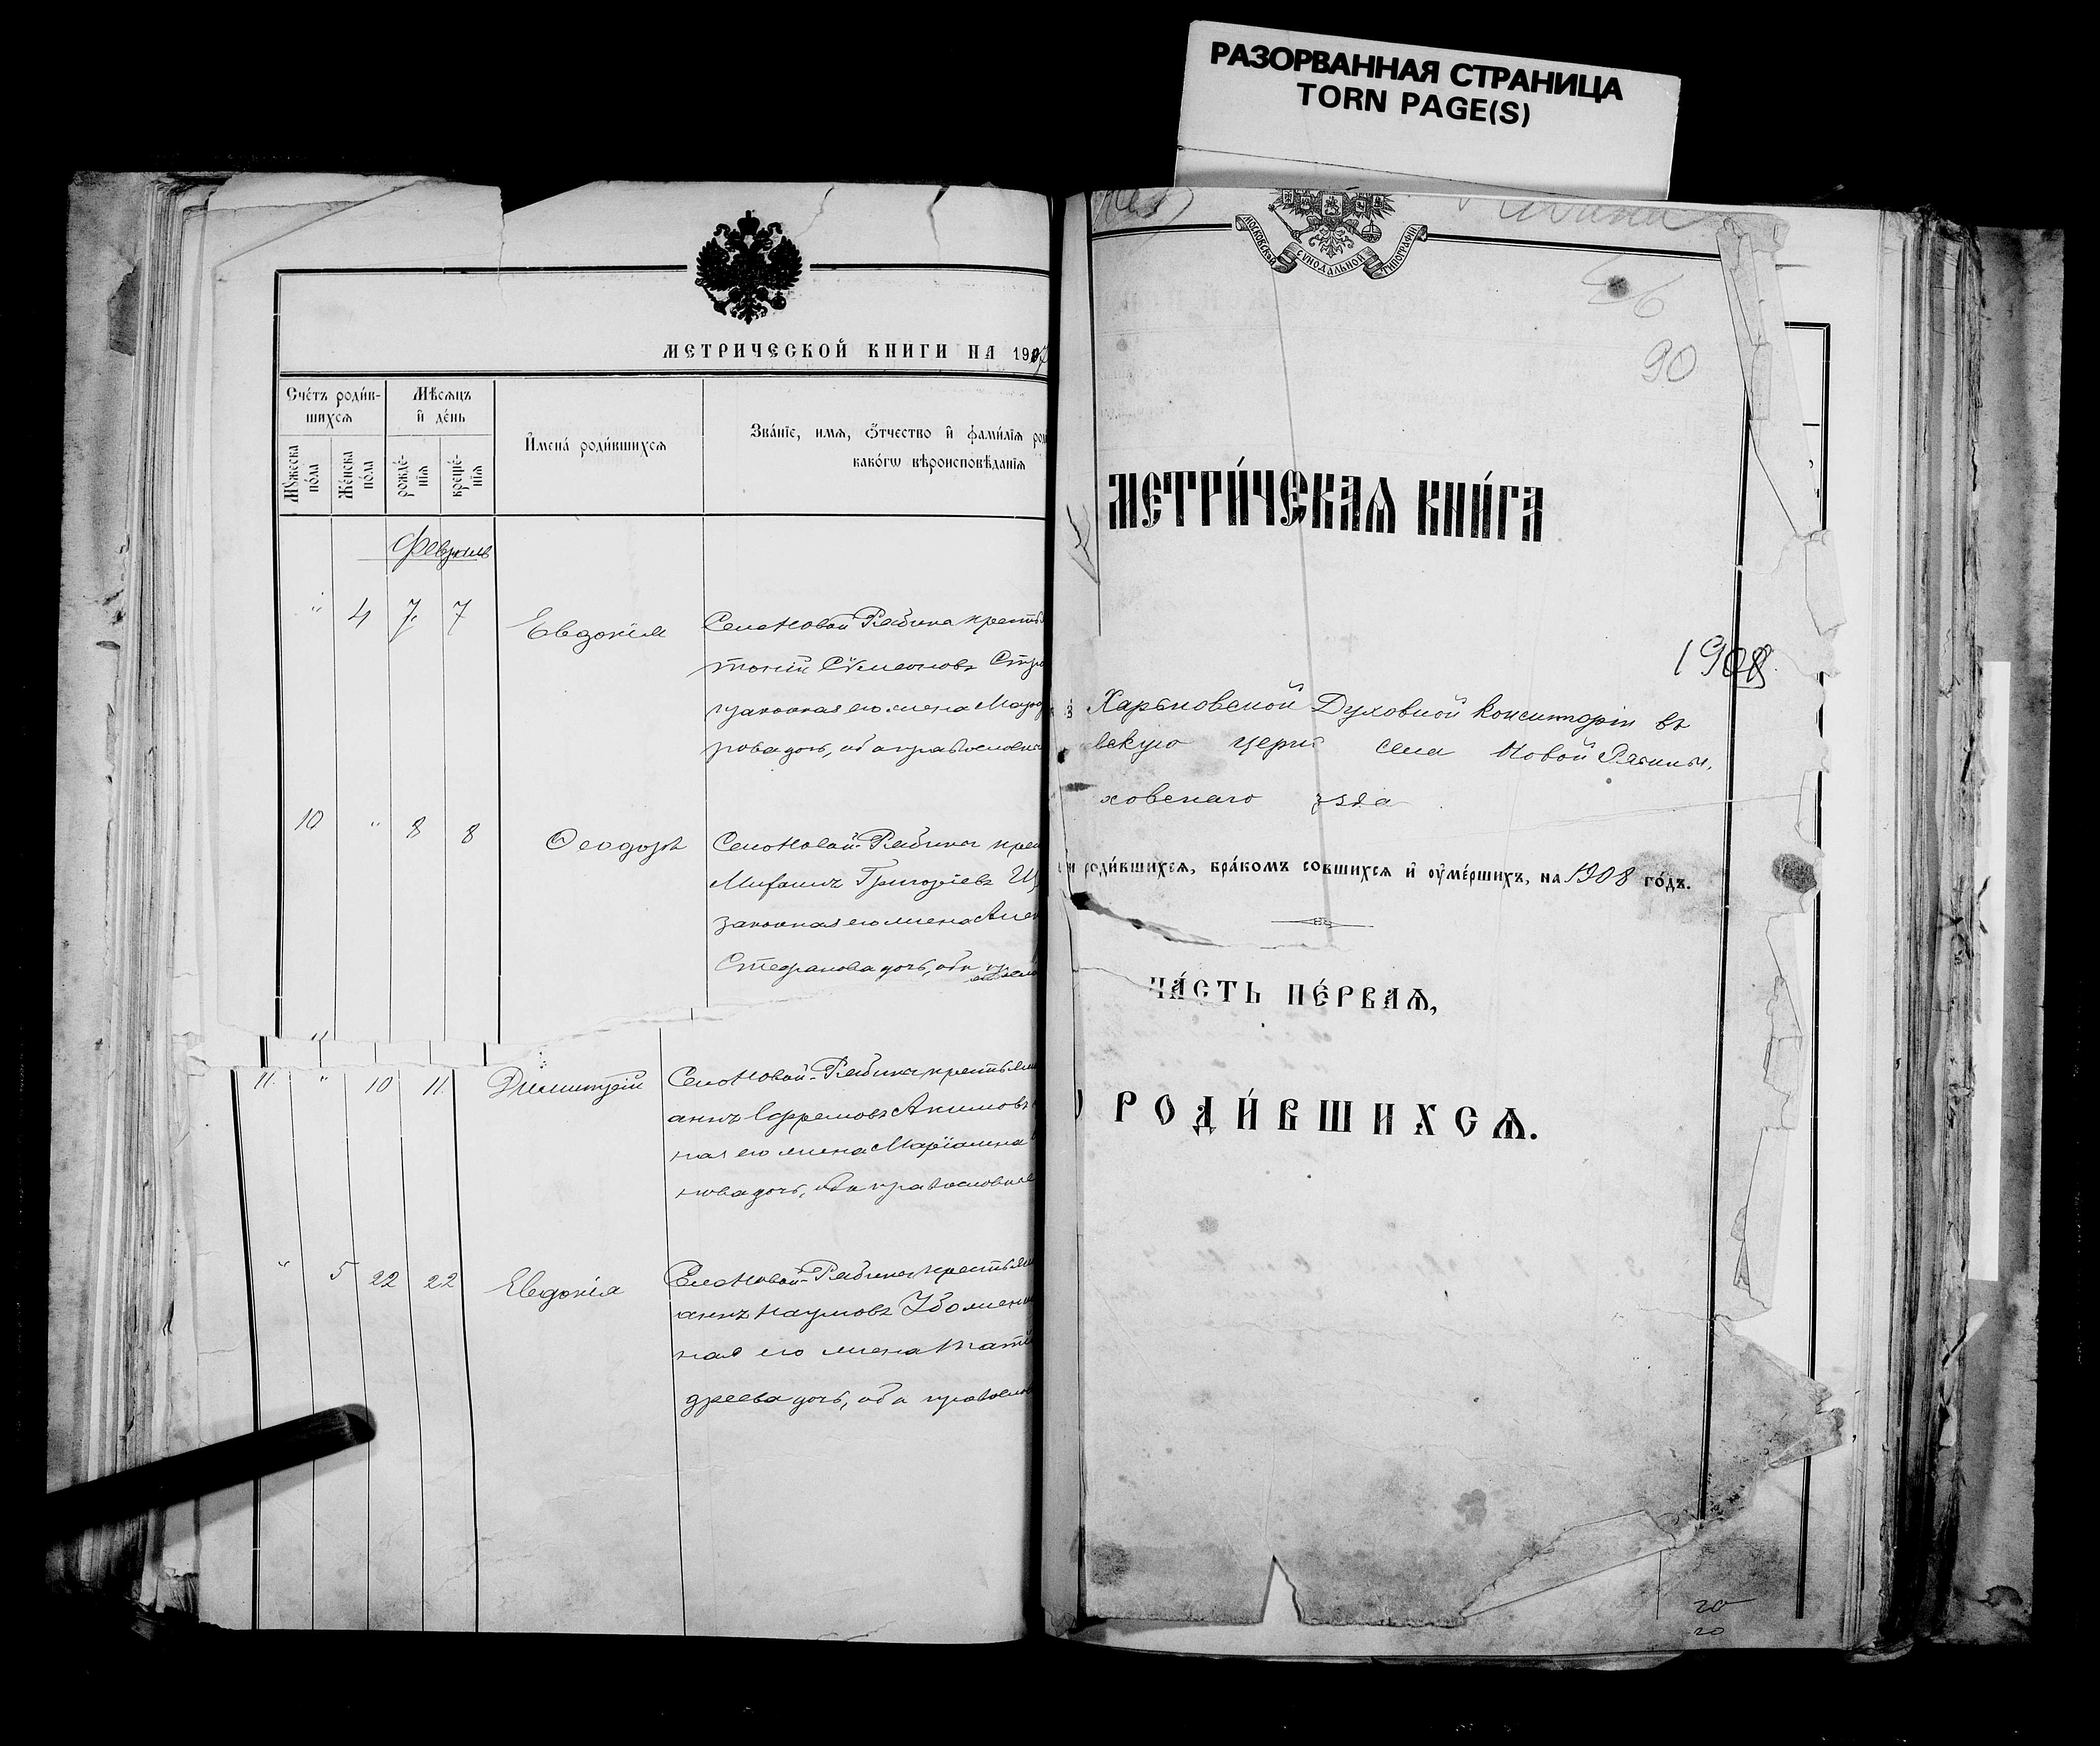 РАЗОРВАННАЯ СТРАНИЦА
TORN PAGE(S)
МЕТРИЧЕСКОЙ КНИГИ НА 190
Сче́тъ роди́в-
шихсѧ
Мѣсѧцъ
и҆ де́нь
Мꙋ́жеска
по́ла
Же́нска
по́ла
рожде́-
нїѧ
креще́-
нїѧ
И҆мена̀ роди́вшихсѧ
Зва́нїе, имѧ, ѻ҆́тчество и҆ фами́лїѧ род
како́гѡ вѣроисповѣ́данїѧ
Февраль
" 4 7 7 Евдокія
Село Новой Рябина крестья
тоній Сѵмеоновъ Стр
законная его жена Мар
рова дочь, оба православн
10 " 8 8 Ѳеодоръ
Село Новой-Рябина крес
Михаилъ Григоріевъ
законная его жена
Стефанова дочь, оба
11 " 10 11 Димитрій
Село Новой-Рябина крестьян
аннъ Ефремовъ Акимовъ
ная его жена Маріамна
нова дочь, оба православные
" 5 22 22 Евдокія
Село Новой-Рябина крестьян
аннъ Наумовъ
ная его жена Тати
дреева дочь, оба православ
МОСКОВСКОЙ СѴНОДАЛЬНОЙ ТИПОГРАФІИ
90
МЕТРИ́ЧЕСКАѦ КНИ́ГА
1908.
Харьковской Духовной Консисторіи въ
вскую церк села Новой Рябины,
ховскаго уѣзда
роди́вшихсѧ, бра́комъ совшихсѧ и҆ ᲂу҆ме́ршихъ, на 1908 го́дъ.
ЧА́СТЬ ПЕ́РВАѦ,
РОДИ́ВШИХСѦ.
20
20